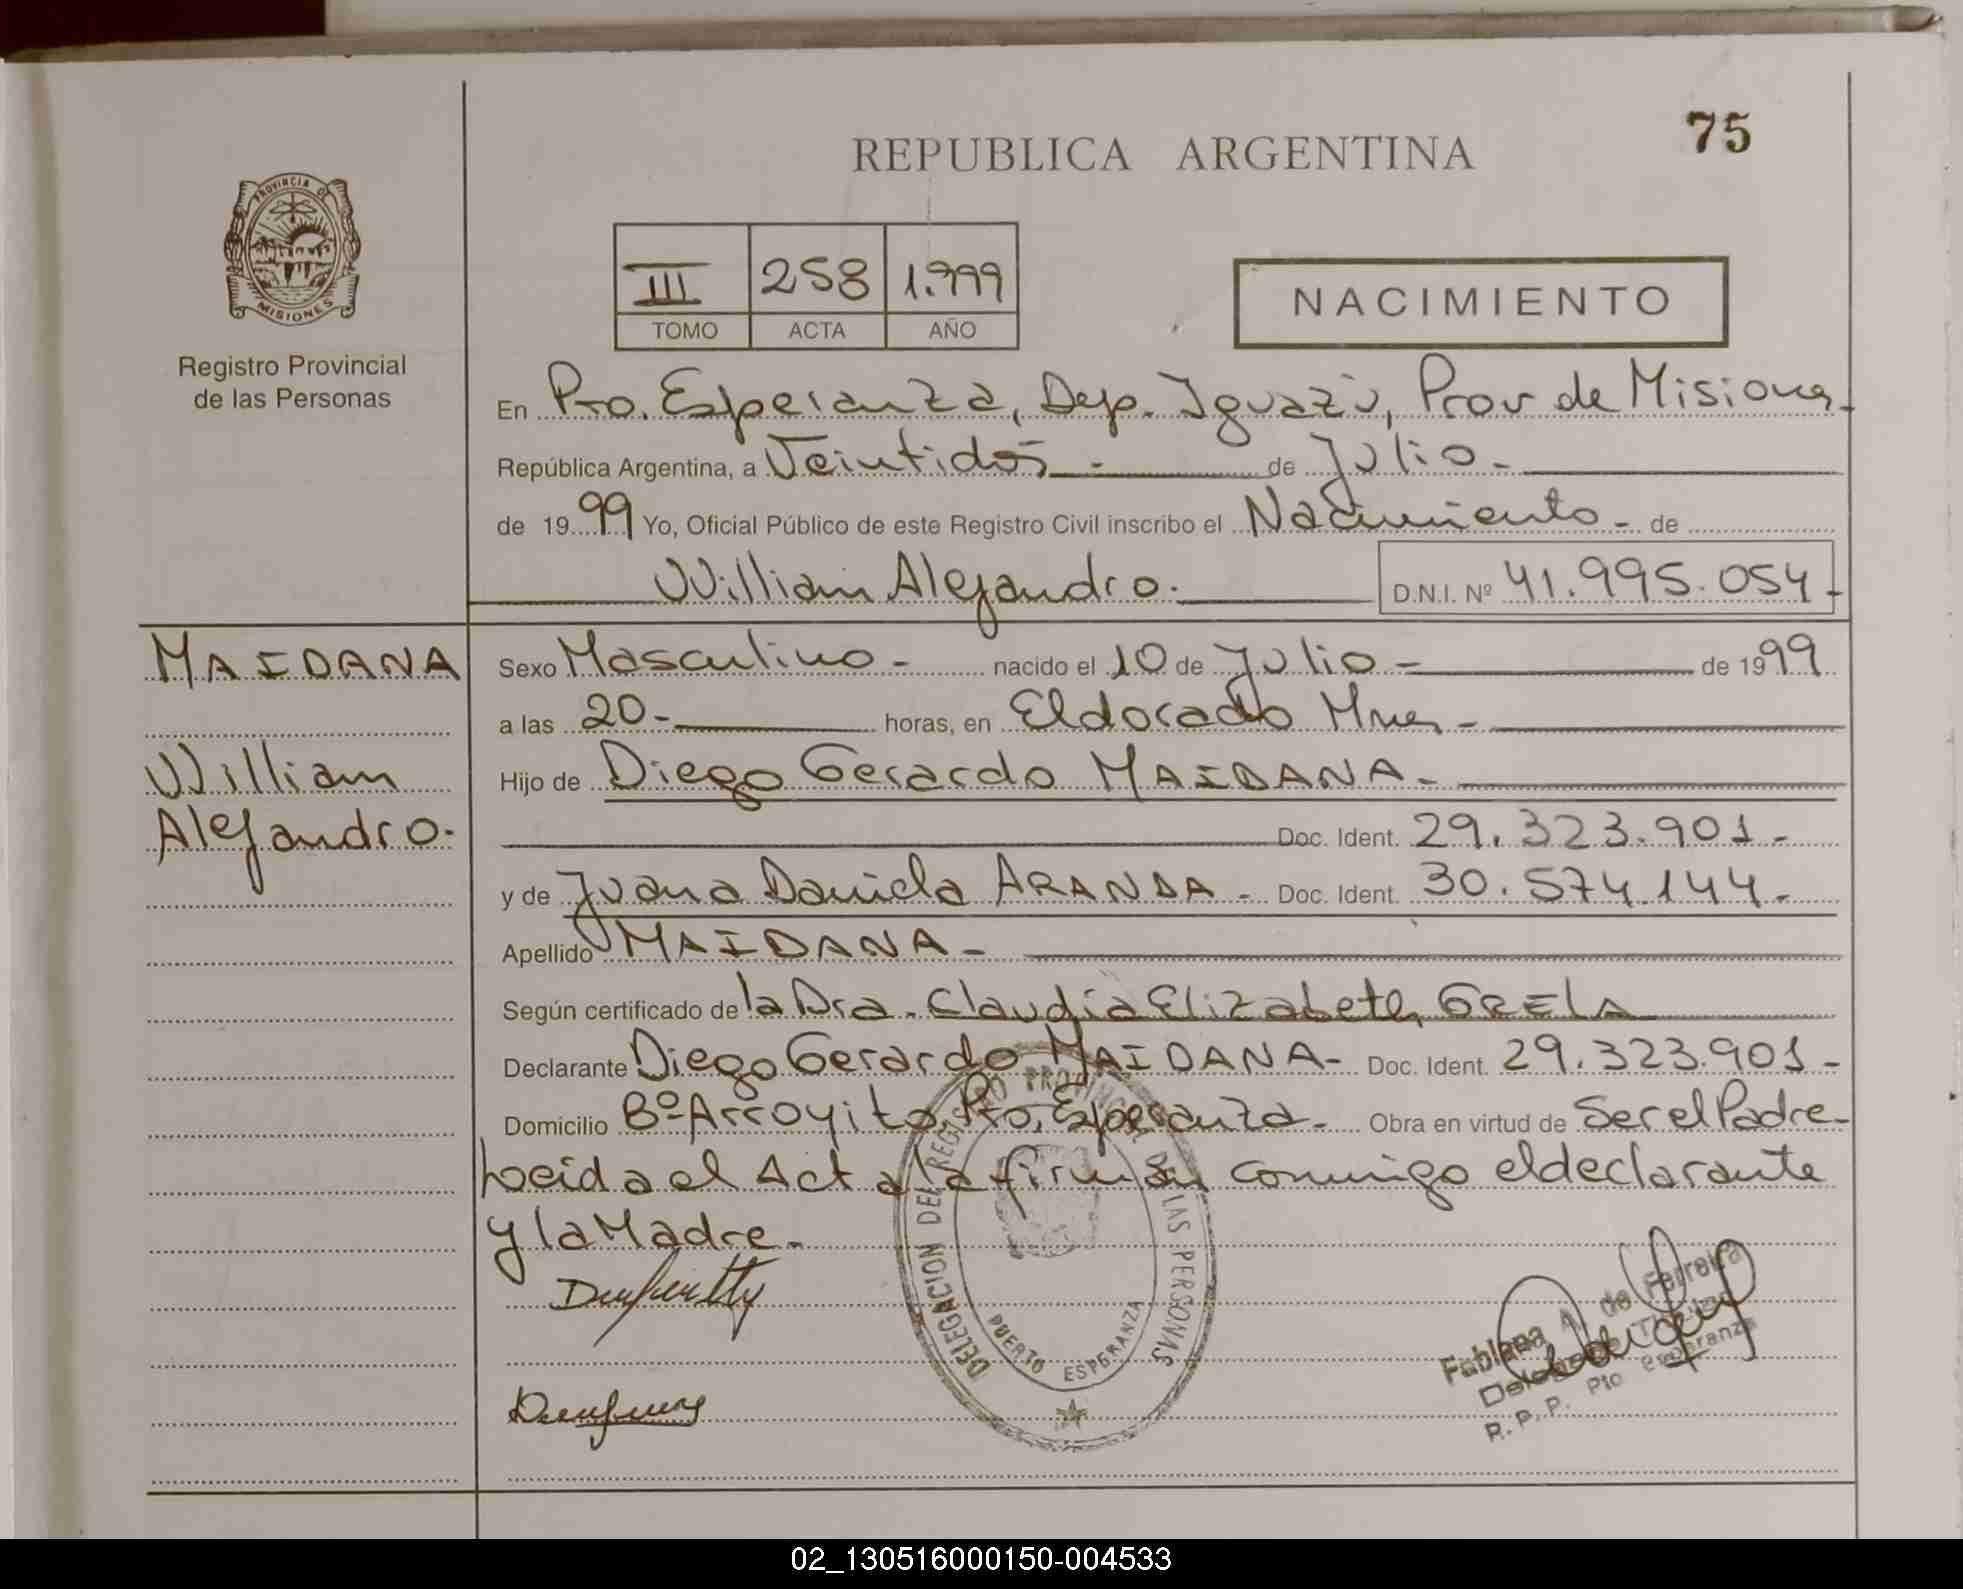 75
REPUBLICA ARGENTINA
PROVINCIA DE
MISIONES
Registro Provincial
de las Personas
III 258 1.999
TOMO ACTA AÑO
NACIMIENTO
En Pto. Esperanza, Dep. Iguazú, Prov de Misiones
República Argentina, a Veintidós - de Julio -
de 1999 Yo, Oficial Público de este Registro Civil inscribo el Nacimiento - de
William Alejandro. D.N.I. Nº 41.995.054-
MAIDANA
William
Alejandro.
Sexo Masculino - nacido el 10 de Julio - de 1999
a las 20- horas, en Eldorado Mnes -
Hijo de Diego Gerardo MAIDANA -
Doc. Ident. 29.323.901-
y de Juana Daniela ARANDA - Doc. Ident. 30.574.144-
Apellido MAIDANA -
Según certificado de la Dra. Claudia Elizabeth GRELA
Declarante Diego Gerardo MAIDANA- Doc. Ident. 29.323.901-
Domicilio Bº Arroyito Pto. Esperanza - Obra en virtud de Ser el Padre-
Leida el Acta la firman conmigo el declarante
y la Madre -
DELEGACION DEL REGISTRO PROVINCIAL DE LAS PERSONAS
PUERTO ESPERANZA
Fabiana A. de Ferreira
Delegada Titular
R. P. P. Pto Esperanza
02_130516000150-004533